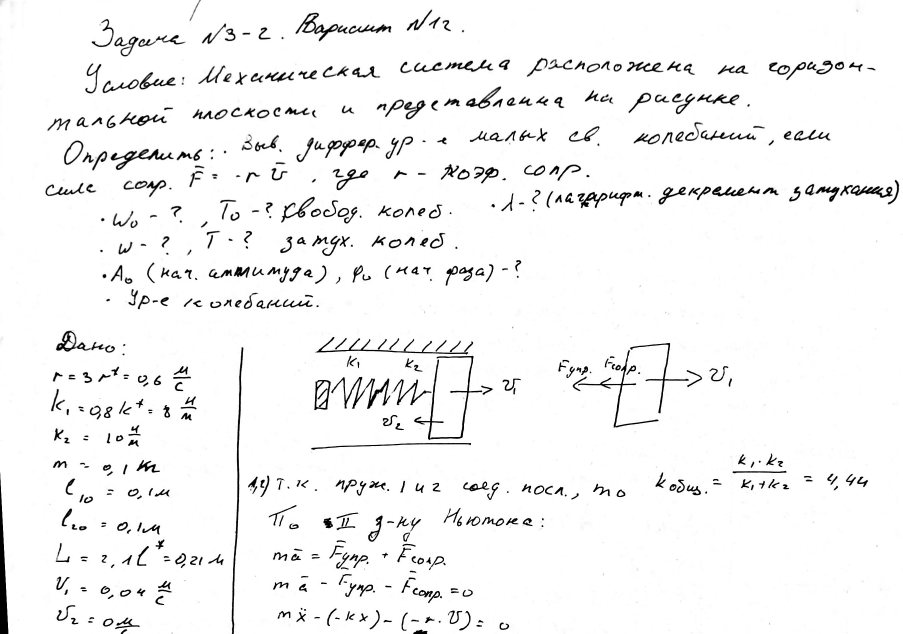 Задача N3-2. Вариант N12.
Условие: Механическая система расположена на горизон-
тальной плоскости и представленна на рисунке.
Определить: · Выв. диффер. ур-е малых св. колебаний, если
силе сопр. F̄ = -r ῡ, где r - коэф. сопр.
· ω₀ - ? , T₀ - ? свобод. колеб. · λ - ? (логарифм. декремент затухания)
· ω - ? , T - ? затух. колеб.
· A₀ (нач. амплитуда), φ₀ (нач. фаза) - ?
· Ур-е колебаний.
Дано:
r = 3 r* = 0,6 м/с
k₁ = 0,8 k* = 8 н/м
k₂ = 10 н/м
m = 0,1 кг
l₁₀ = 0,1 м
l₂₀ = 0,1 м
L = 2,1 l* = 0,21 м
υ₁ = 0,04 м/с
υ₂ = 0 м/с
k₁ k₂
υ₁
υ₂
Fупр. Fсопр. υ₁
1,2) Т.к. пруж. 1 и 2 соед. посл., то kобщ. = k₁·k₂/k₁+k₂ = 4,44
По II з-ну Ньютона:
mā = F̄упр. + F̄сопр.
mā - F̄упр. - F̄сопр. = 0
mẍ - (-kx) - (-r·υ) = 0